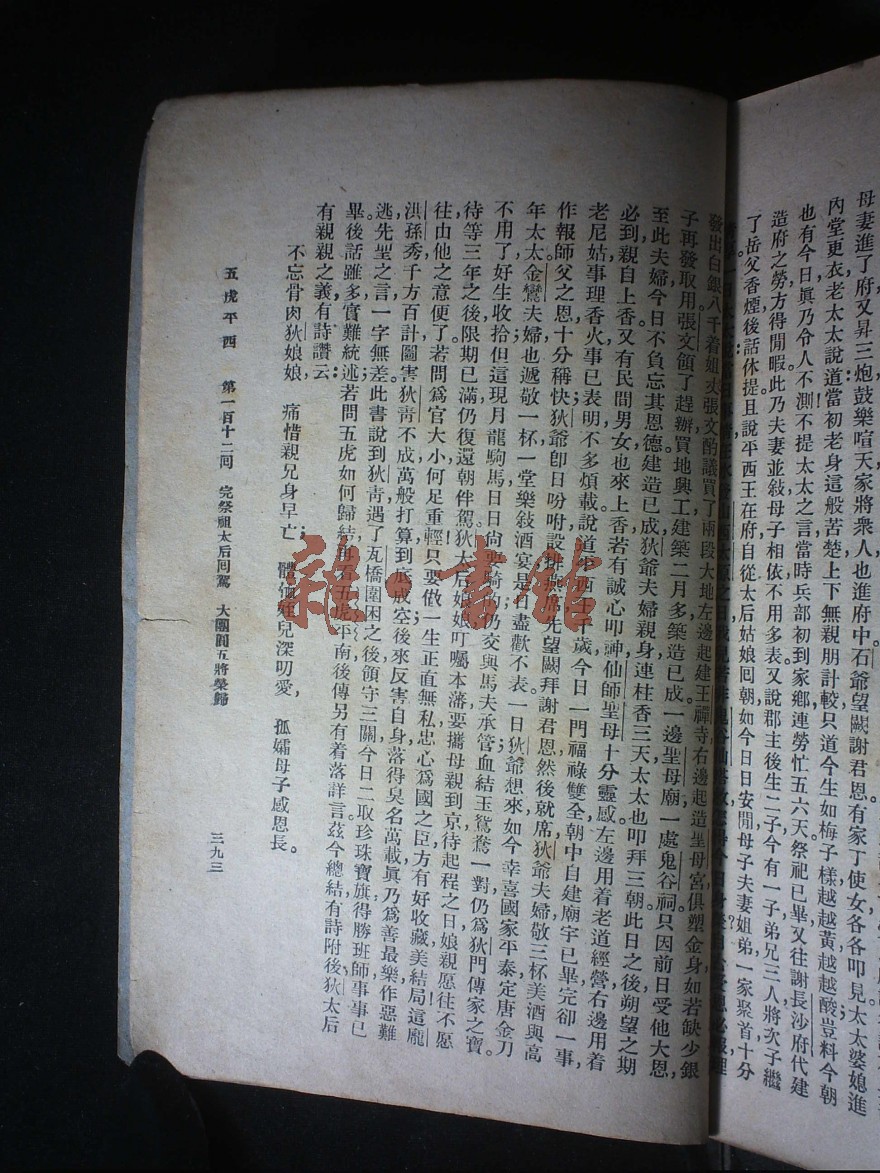 母妻進了府又昇三炮鼓樂喧天家將衆人也進府中石爺望闕謝君恩有家丁使女各各叩見太太婆媳進
內堂更衣老太太說道當初老身這般苦楚上下無親朋計較只道今生如梅子樣越越黃越越酸豈料今朝
也有今日眞乃令人不測不提太太之言當時兵部初到家鄉連勞忙五六天祭祀已畢又往謝長沙府代建
造府之勞方得閒暇此乃夫妻並敍母子相依不用多表又說郡主後生二子今有一子弟兄三人將次子繼
了岳父香煙後話休提且說平西王在府自從太后姑娘囘朝如今日日安閒母子夫妻姐弟一家聚首十分
發出白銀八千着姐丈張文酌議買了兩段大地左邊起建王禪寺右邊起造聖母宮俱塑金身如若缺少銀
子再發取用張文領了趕辦買地興工建築二月多築造已成一邊聖母廟一處鬼谷祠。只因前日受他大恩，
至此夫婦今日不負忘其恩德建造已成狄爺夫婦親身連柱香三天太太也叩拜三朝此日之後朔望之期
必到親自上香又有民間男女也來上香若有誠心叩神仙師聖母十分靈感左邊用着老道經營右邊用着
老尼姑事理香火事已表明不多煩載說道平西王千歲今日一門福祿雙全朝中自建廟宇已畢完卻一事，
作報師父之恩十分稱快狄爺卽日吩咐設排筵席先望闕拜謝君恩然後就席狄爺夫婦敬三杯美酒與高
年太太金鸞夫婦也遞敬一杯一堂樂敍酒宴是日盡歡不表一日狄爺想來如今幸喜國家平泰定唐金刀
不用了好生收拾但這現月龍駒馬日日尙要騎的仍交與馬夫承管血結玉鴛鴦一對仍爲狄門傳家之寶。
待等三年之後限期已滿仍復還朝伴駕狄太后娘娘叮囑本藩要攜母親到京待起程之日娘親愿往不愿
往由他之意便了若問爲官大小何足重輕只要做一生正直無私忠心爲國之臣方有好收藏美結局這龐
洪孫秀千方百計圖害狄靑不成萬般打算到底成空後來反害自身落得臭名萬載眞乃爲善最樂作惡難
逃先聖之言一字無差此書說到狄靑遇了瓦橋圍困之後領守三關今日二取珍珠寶旗得勝班師事事已
畢後話雖多實難統述若問五虎如何歸結再看五虎平南後傳另有着落詳言茲今總結有詩附後狄太后
有親親之義有詩讚云：
不忘骨肉狄娘娘，　痛惜親兄身早亡；　體恤姪兒深叨愛，　孤孀母子感恩長。
五虎平西　第一百十二囘　完祭祖太后囘駕　大團圓五將榮歸　三九三
雜·書館